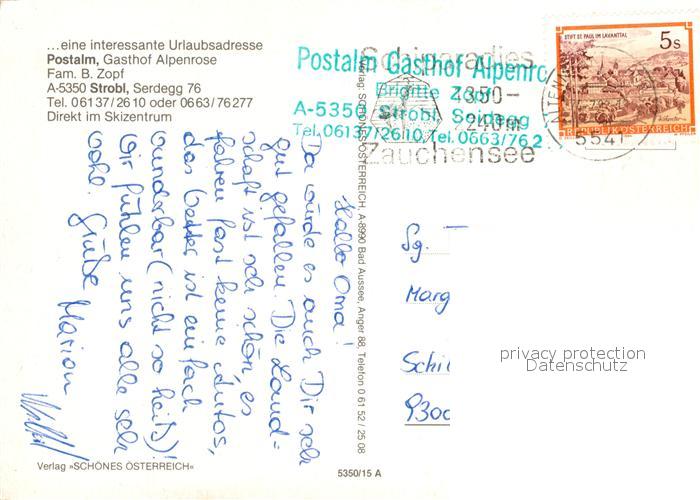 ...eine interessante Urlaubsadresse
Postalm, Gasthof Alpenrose
Fam. B. Zopf
A-5350 Strobl, Serdegg 76
Tel. 06137/2610 oder 0663/76277
Direkt im Skizentrum
Postalm Gasthof Alpenro
Brigitte Zopf
A-5350 Strobl, Serdegg
Tel. 06137/2610, Tel. 0663/762
Schiparadies
1350-
Zauchensee
5541
STIFT ST. PAUL IM LAVANTTAL
5s
REPUBLIK ÖSTERREICH
Hallo Oma!
Da würde es auch Dir sehr
gut gefallen. Die Land=
schaft ist sehr schön, es
fahren fast keine Autos,
das Wetter ist einfach
wunderbar (nicht so heiß)!
Wir fühlen uns alle sehr
wohl. Grüße Marion
Verlag: SCHÖNES ÖSTERREICH, A-8990 Bad Aussee, Anger 88, Telefon 0 61 52 / 25 08
Sg.
Marg
Schil
9300
privacy protection
Datenschutz
Verlag »SCHÖNES ÖSTERREICH«
5350/15 A